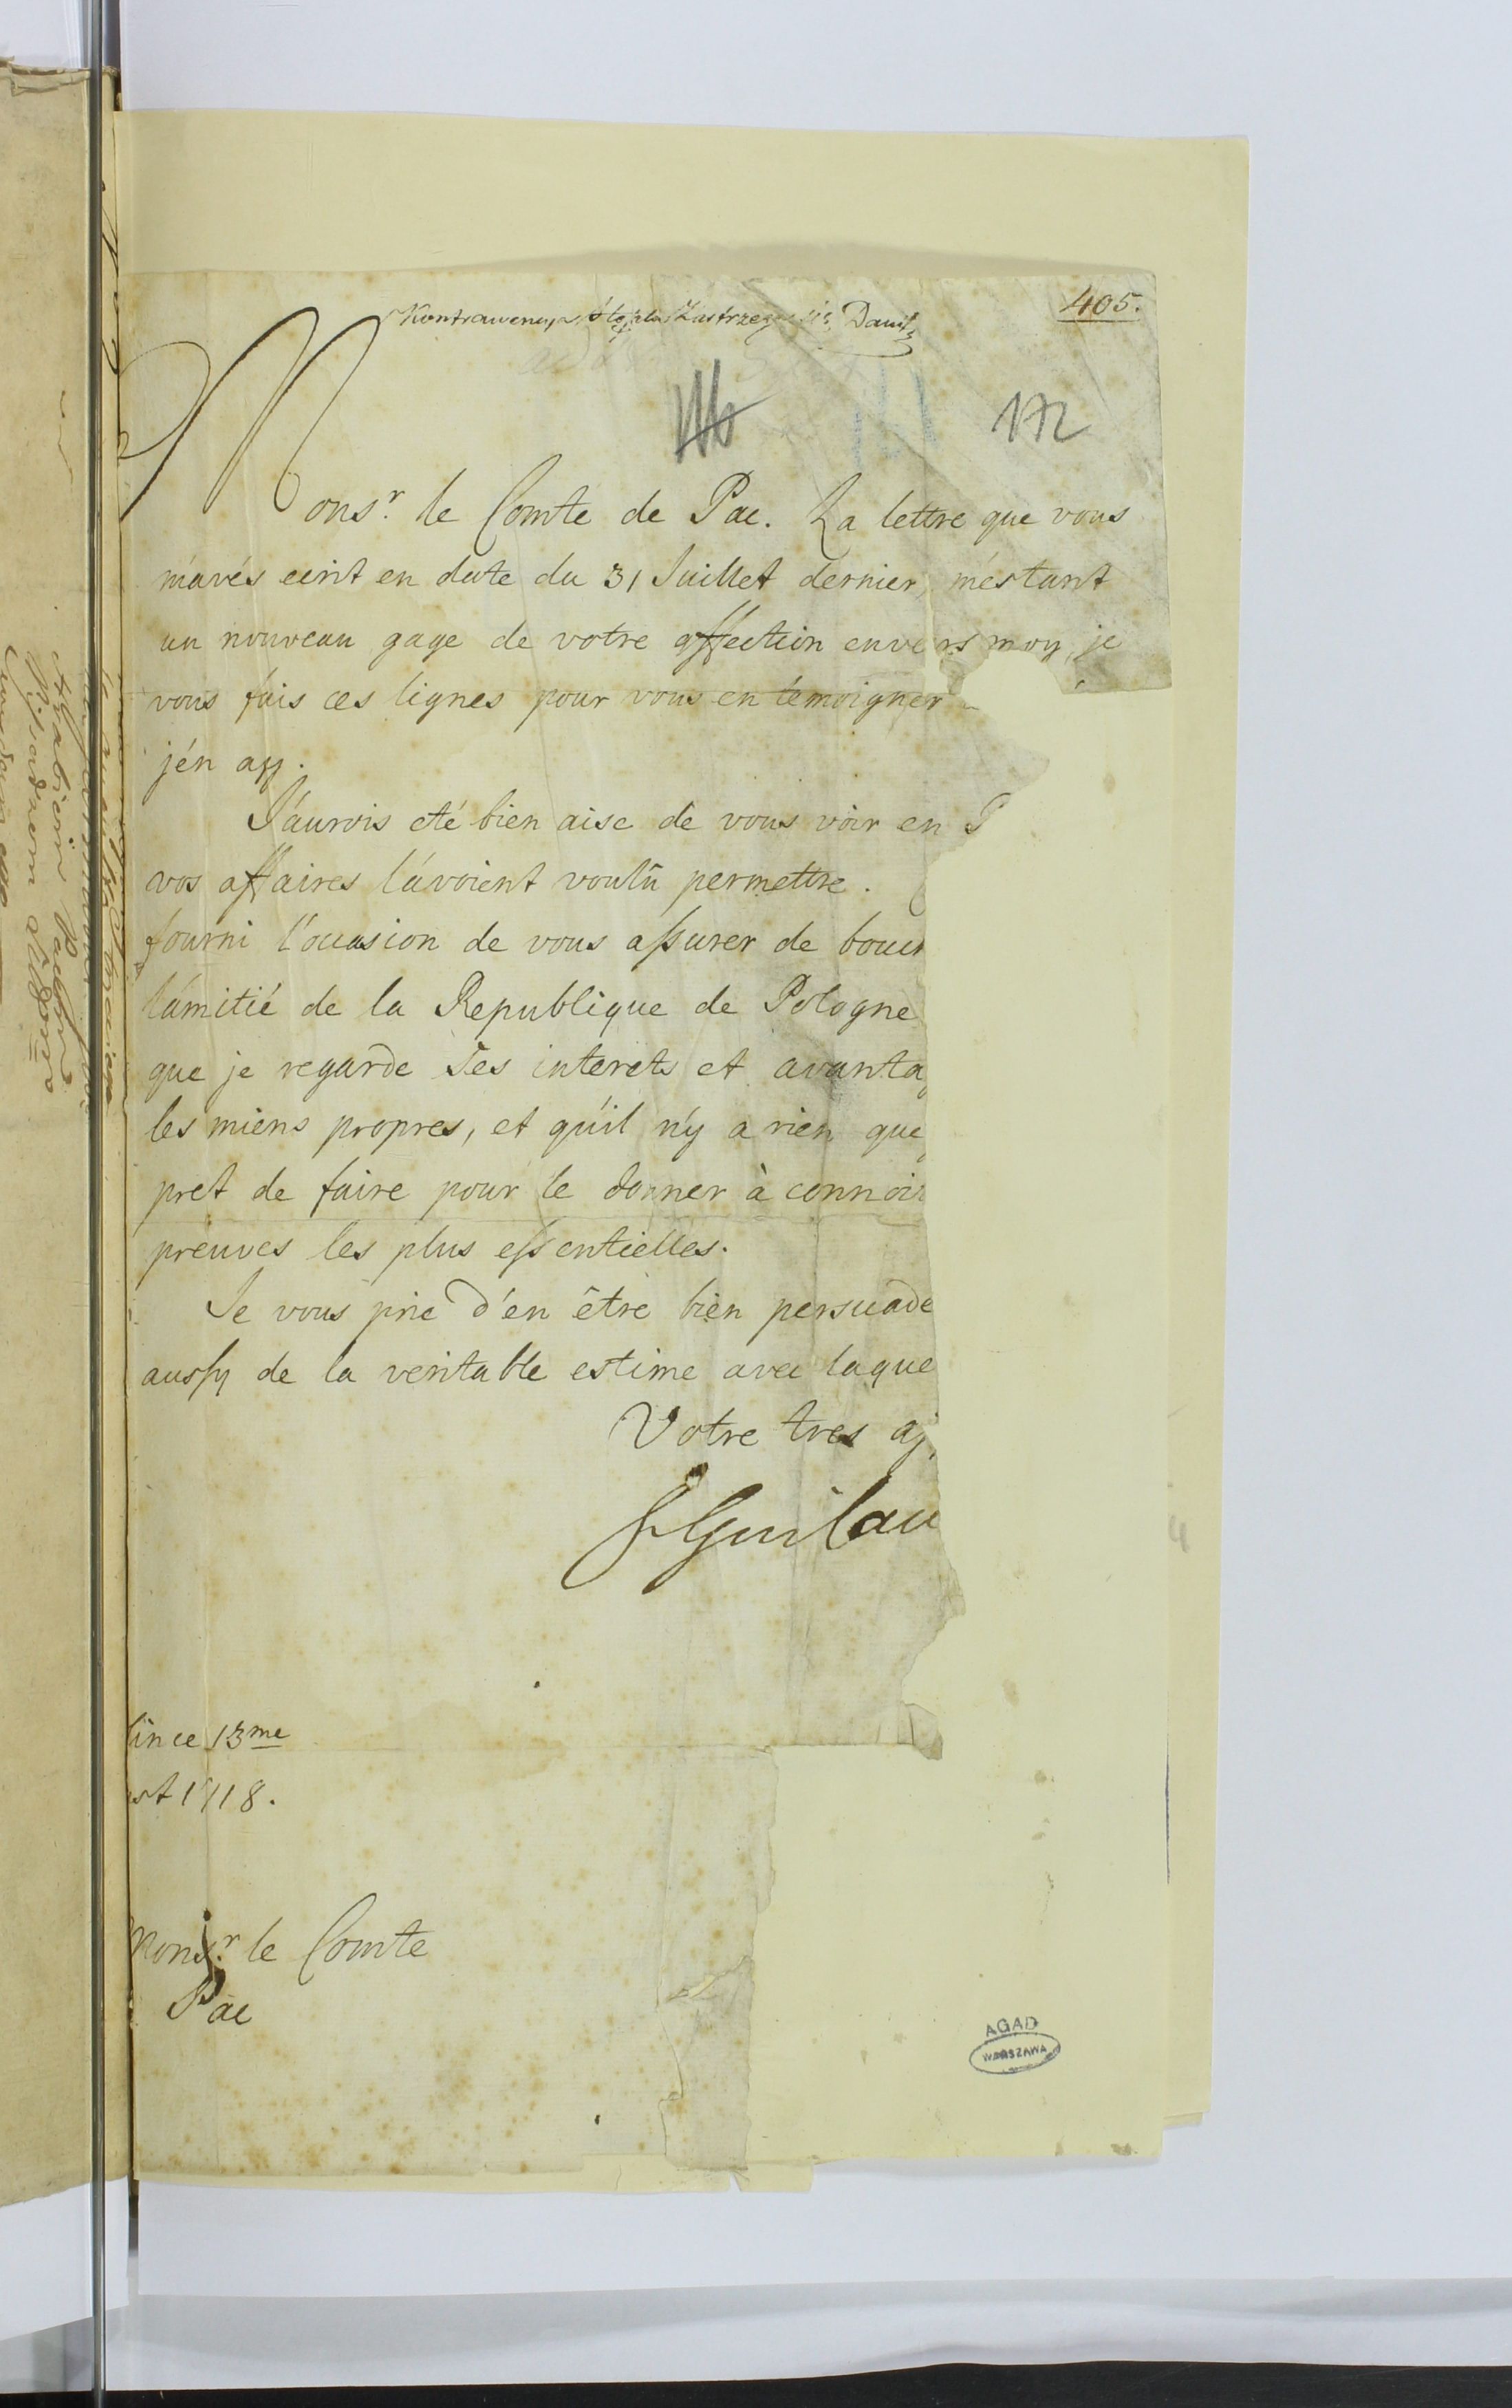 405.
Kontrawencya Stępla Zastrzega się
172
Monsr. le Comte de Pac. La lettre que vous
m'avés ecrit en date du 31 Juillet dernier, m'estant
un nouveau gage de votre affection envers moy, je
vous fais ces lignes pour vous en temoigner
j'en ay.
J'aurois eté bien aise de vous voir en P
vos affaires l'avoient voulû permettre.
fourni l'occasion de vous assurer de bouch
l'amitié de la Republique de Pologne
que je regarde Ses interets et avantag
les miens propres, et qu'il n'y a rien que
pret de faire pour le donner à connoir
preuves les plus essentielles.
Je vous prie d'en être bien persuadé
aussy de la veritable estime avec laque
Votre tres af
F Guillau
lin ce 13me
ust 1718.
Monsr. le Comte
Pac
AGAD
WARSZAWA